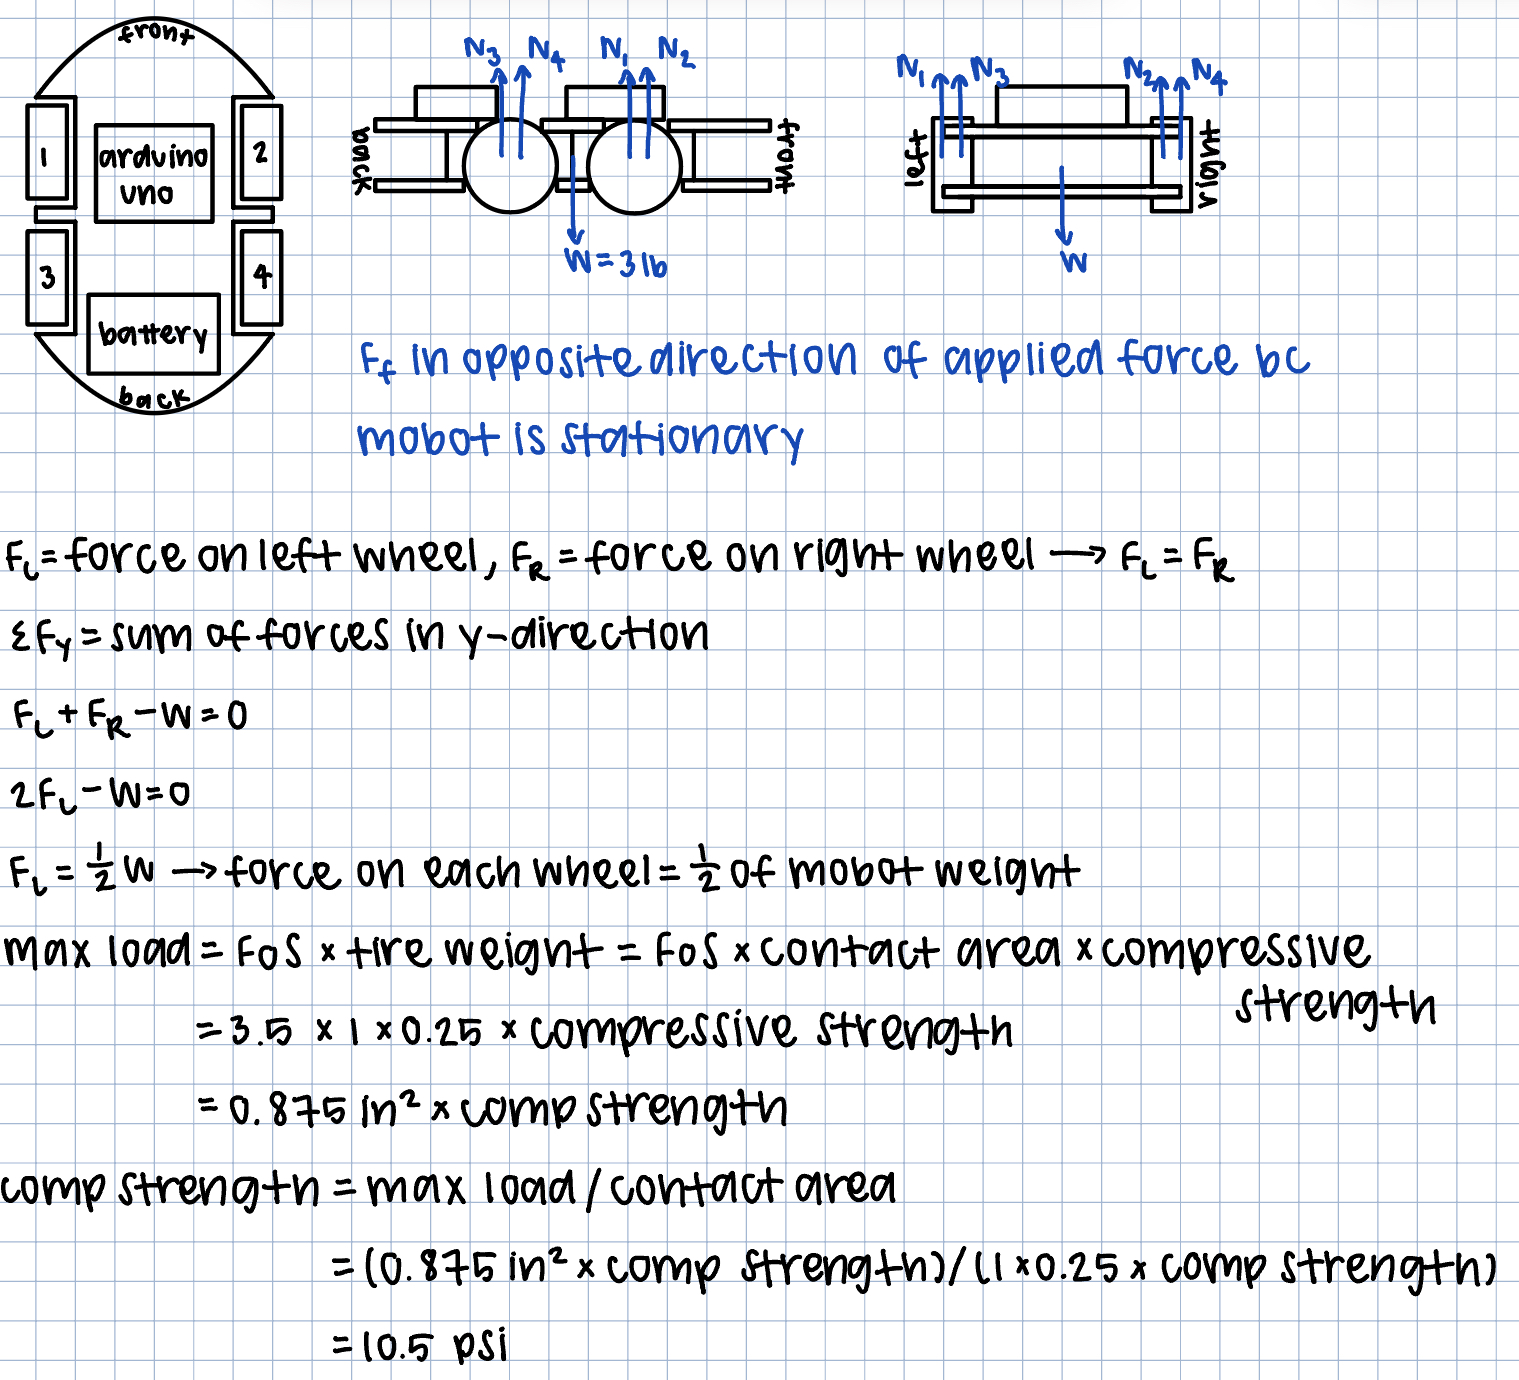 front
1
arduino
uno
2
3
battery
4
back
N₃ N₄ N₁ N₂
back
front
W = 3 lb
N₁ N₃ N₂ N₄
left
right
W
F_f in opposite direction of applied force bc
mobot is stationary
F_L = force on left wheel, F_R = force on right wheel → F_L = F_R
ΣF_y = sum of forces in y-direction
F_L + F_R - W = 0
2F_L - W = 0
F_L = ½ W → force on each wheel = ½ of mobot weight
max load = FoS × tire weight = FoS × contact area × compressive
strength
= 3.5 × 1 × 0.25 × compressive strength
= 0.875 in² × comp strength
comp strength = max load / contact area
= (0.875 in² × comp strength) / (1 × 0.25 × comp strength)
= 10.5 psi